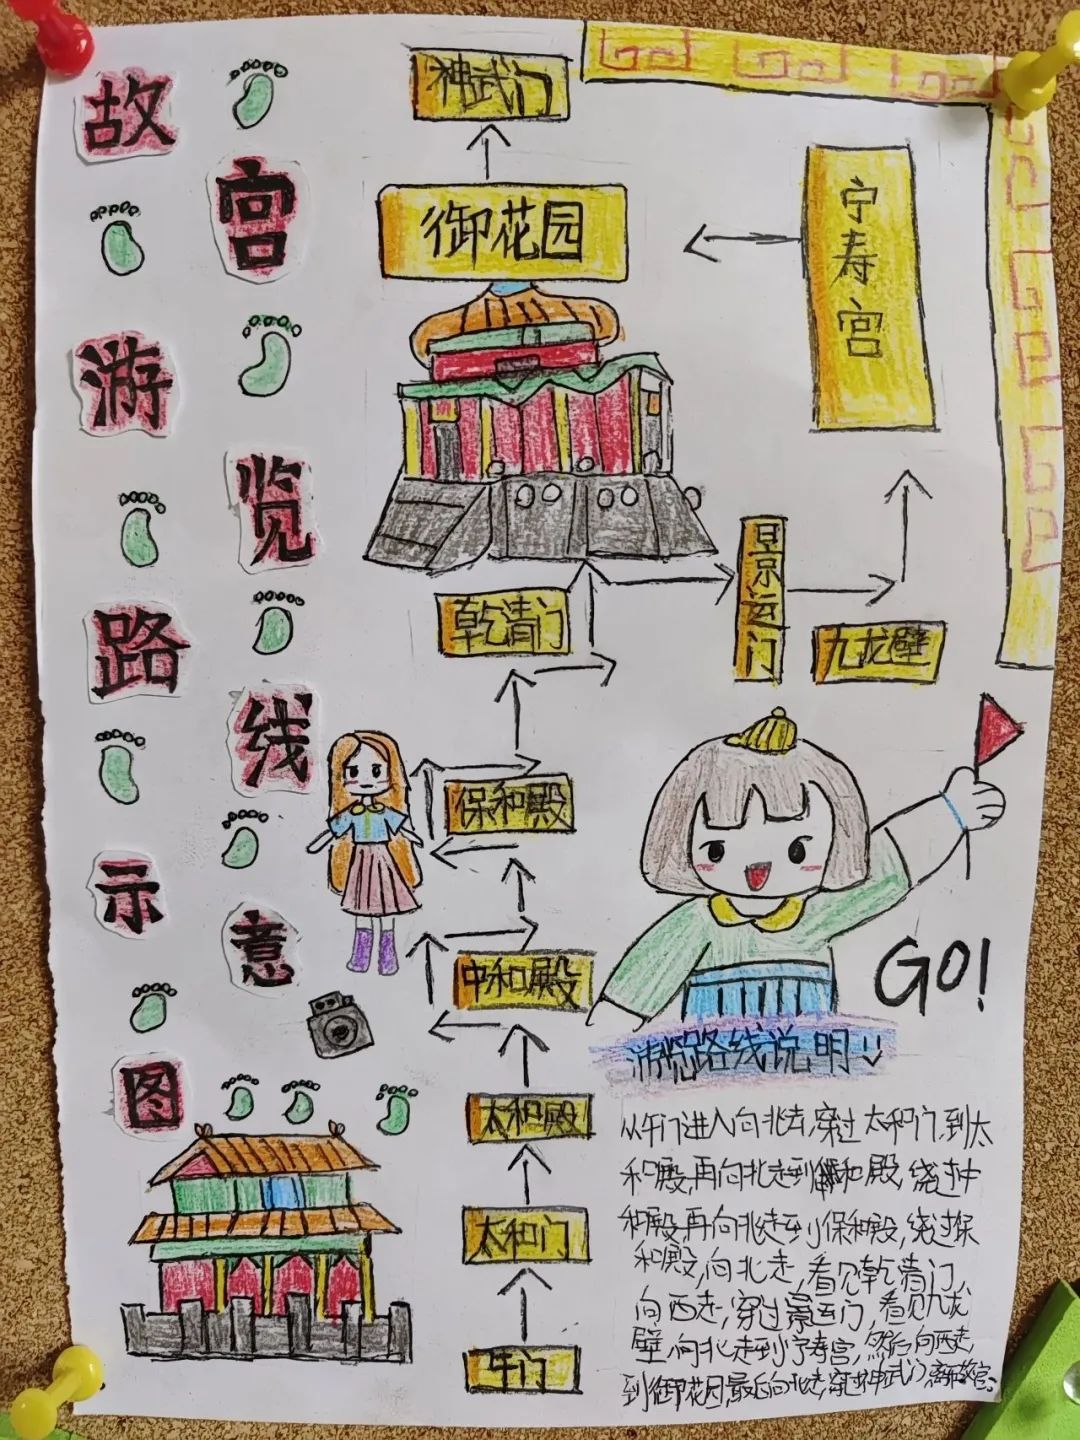 故宫游览路线示意图
神武门
御花园
宁寿宫
景运门
九龙壁
乾清门
保和殿
中和殿
太和殿
太和门
午门
GO!
游览路线说明↓
从午门进入向北去,穿过太和门,到太
和殿,再向北走到和殿,绕过中
和殿再向北走到保和殿,绕过保
和殿,向北走,看见乾清门、
向西走,穿过景运门,看见九龙
壁,向北走到宁寿宫,然后向西走,
到御花园,最后向北走,穿过神武门,离开故宫。